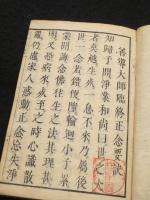 善導大師臨終正念要訣
知歸子問淨業和尚曰世之大
者莫越生死一息不來乃屬後
世一念若錯便墮輪廻小子累
蒙開誨念佛往生之法其理甚
明又恐病來死至之時心識散
亂仍慮家人惑動正念忘失淨